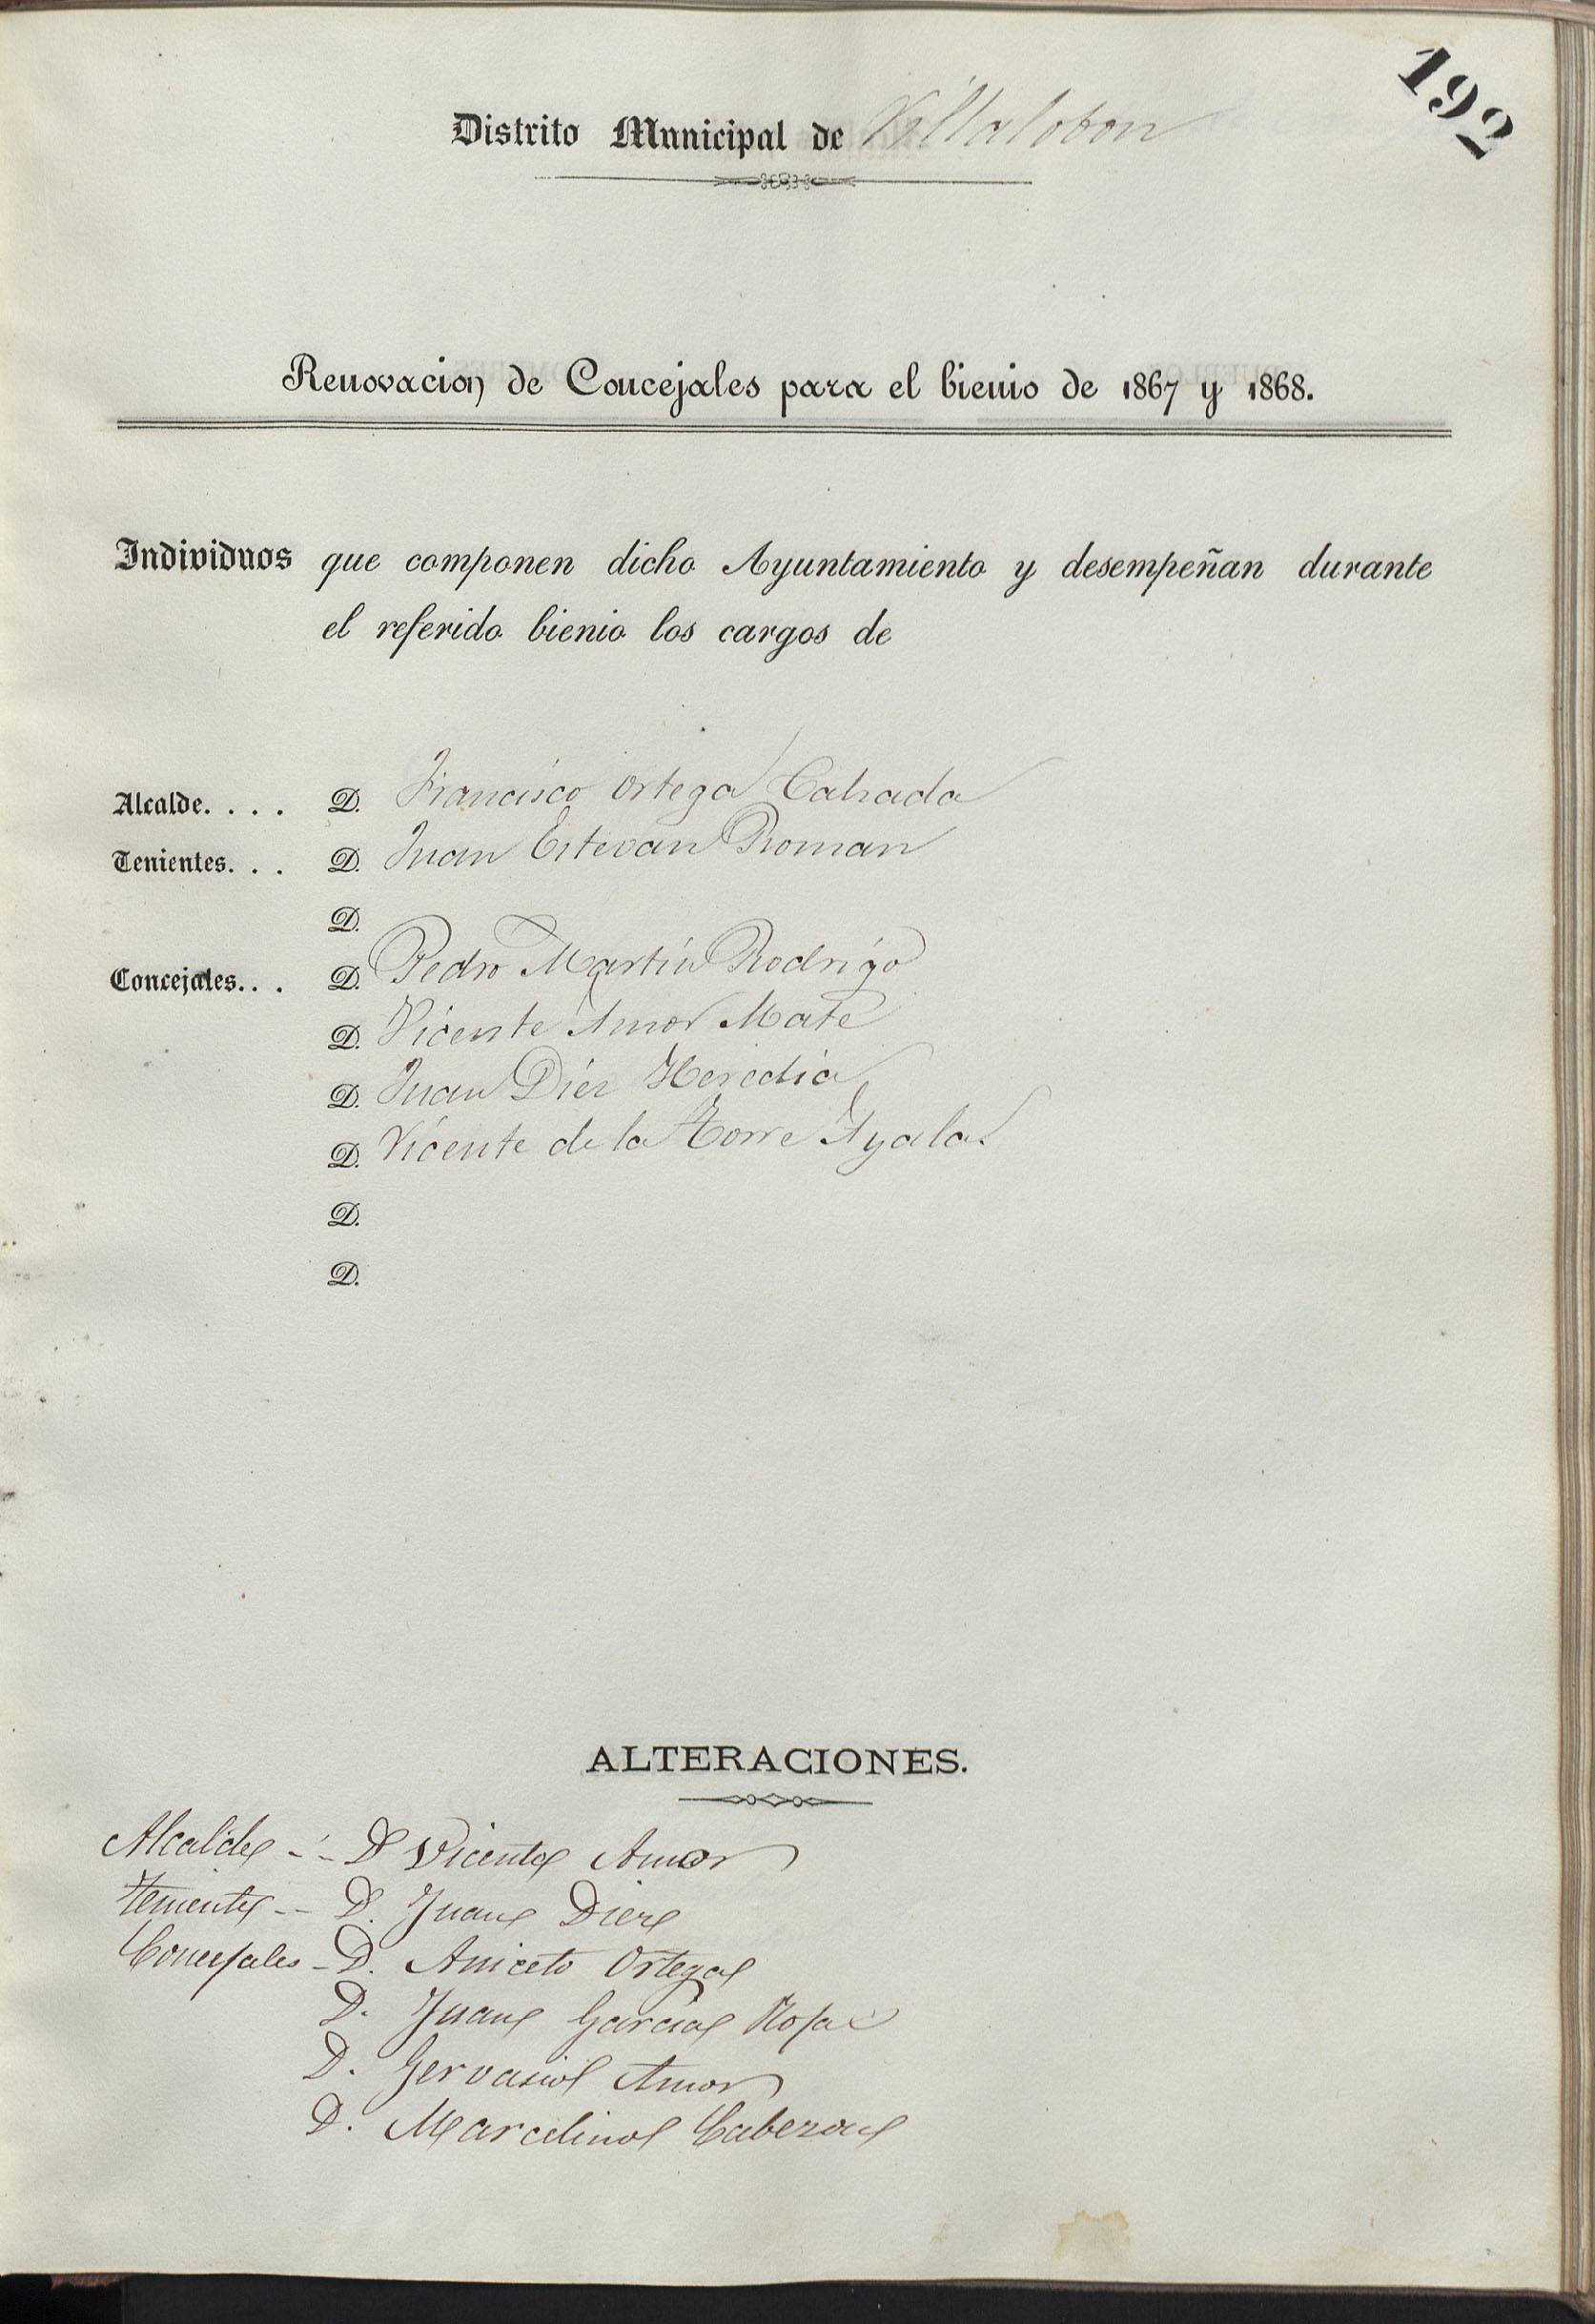 192
Distrito Municipal de Villalobon
Renovacion de Concejales para el bienio de 1867 y 1868.
Individuos que componen dicho Ayuntamiento y desempeñan durante
el referido bienio los cargos de
Alcalde. . . . D. Francisco Ortega Calzada
Tenientes. . . D. Juan Estevan Roman
D.
Concejales. . . D. Pedro Martin Rodrigo
D. Vicente Amor Mate
D. Juan Diez Heredia
D. Vicente de la Torre Ayala
D.
D.
ALTERACIONES.
Alcalde - - D Vicente Amor
Teniente - - D. Juan Diez
Concejales - D. Aniceto Ortega
D. Juan Garcia Rojo
D. Gervasio Amor
D. Marcelino Cabeza